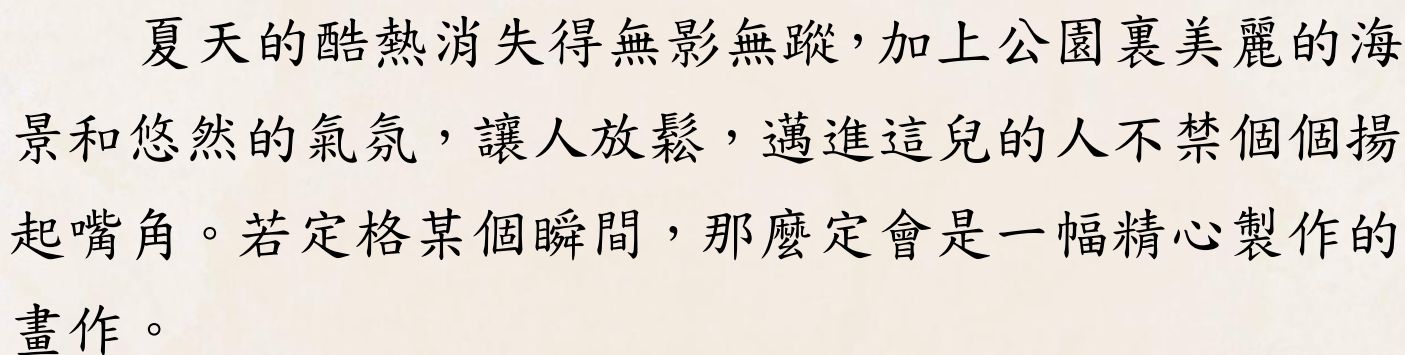 夏天的酷熱消失得無影無蹤，加上公園裏美麗的海
景和悠然的氣氛，讓人放鬆，邁進這兒的人不禁個個揚
起嘴角。若定格某個瞬間，那麼定會是一幅精心製作的
畫作。